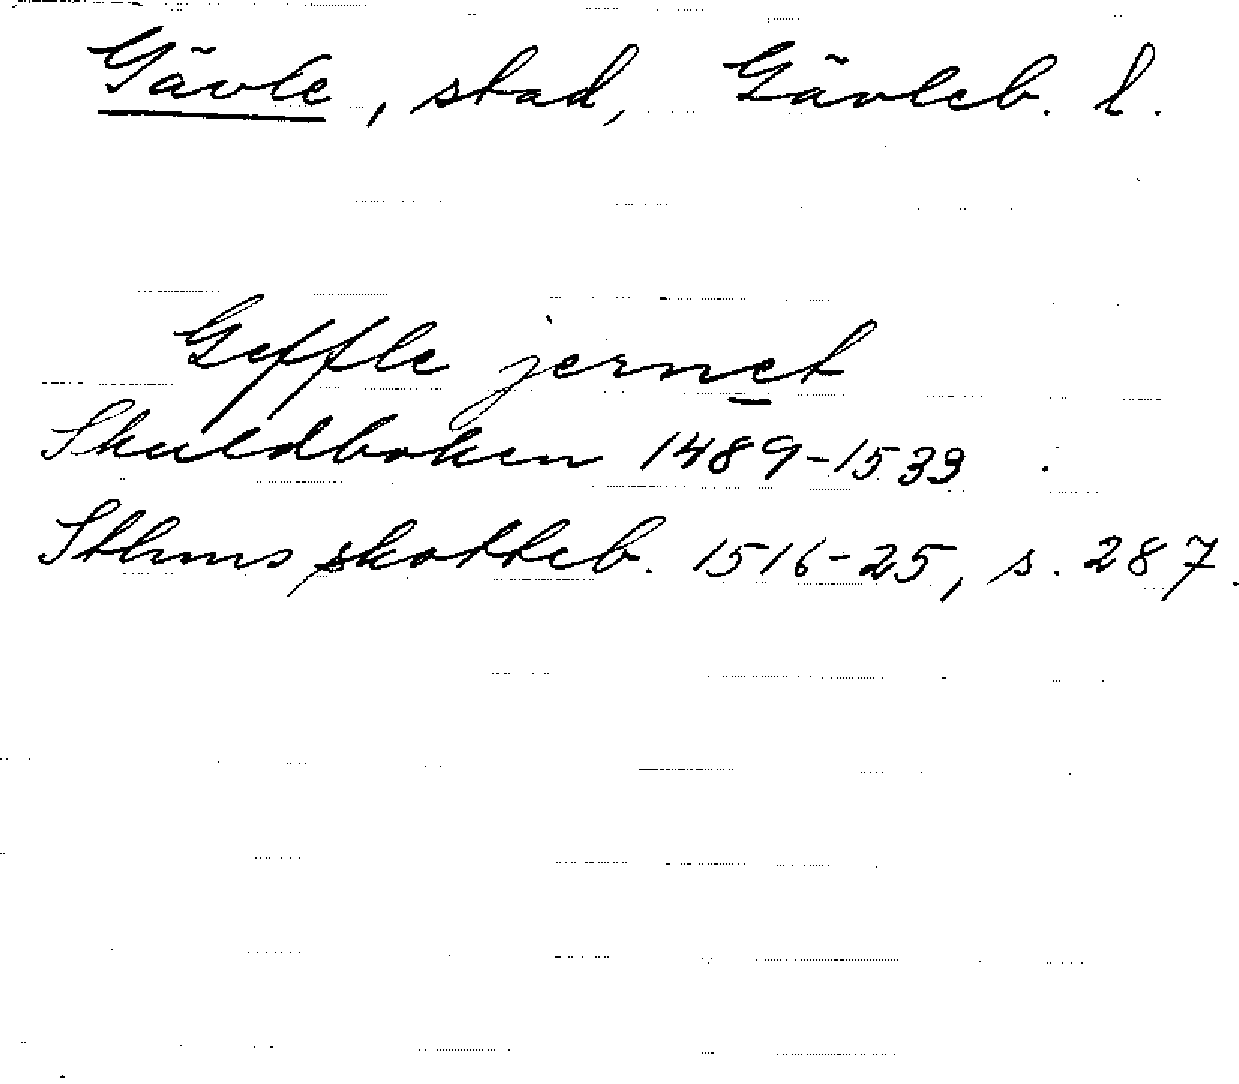 Gävle, stad, Gävleb. l.
Geffle jernet
Skuldboken 1489-1539
Sthms skotteb. 1516-25, s. 287.